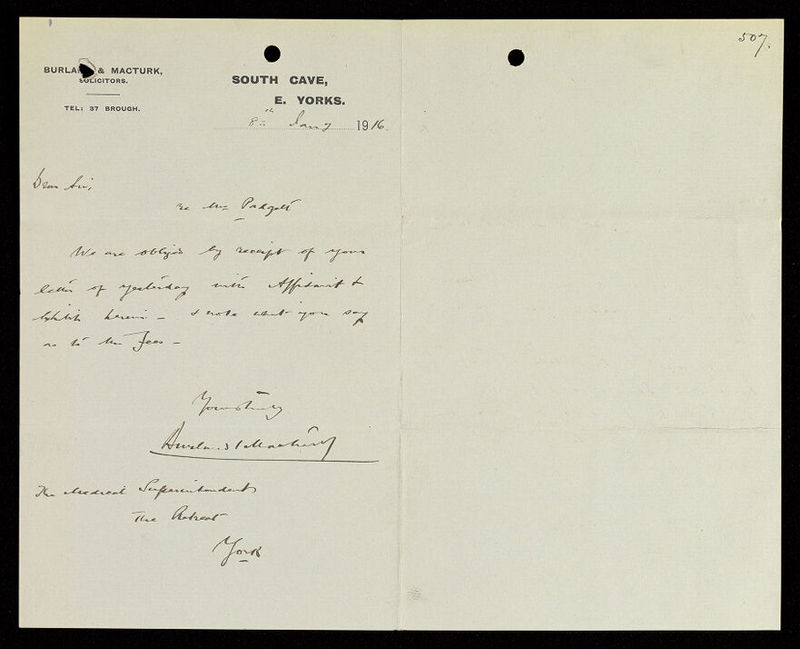 507.
BURLAND & MACTURK,
SOLICITORS.
TEL: 37 BROUGH.
SOUTH CAVE,
E. YORKS.
8th Jany 1916.
Dear Sir,
re Mrs Padgett
We are obliged by receipt of your
letter of yesterday with Affidavit &
Exhibit herein – & note what you say
as to the Fees –
Yours truly
Burland & Macturk
The Medical Superintendent
The Retreat
York